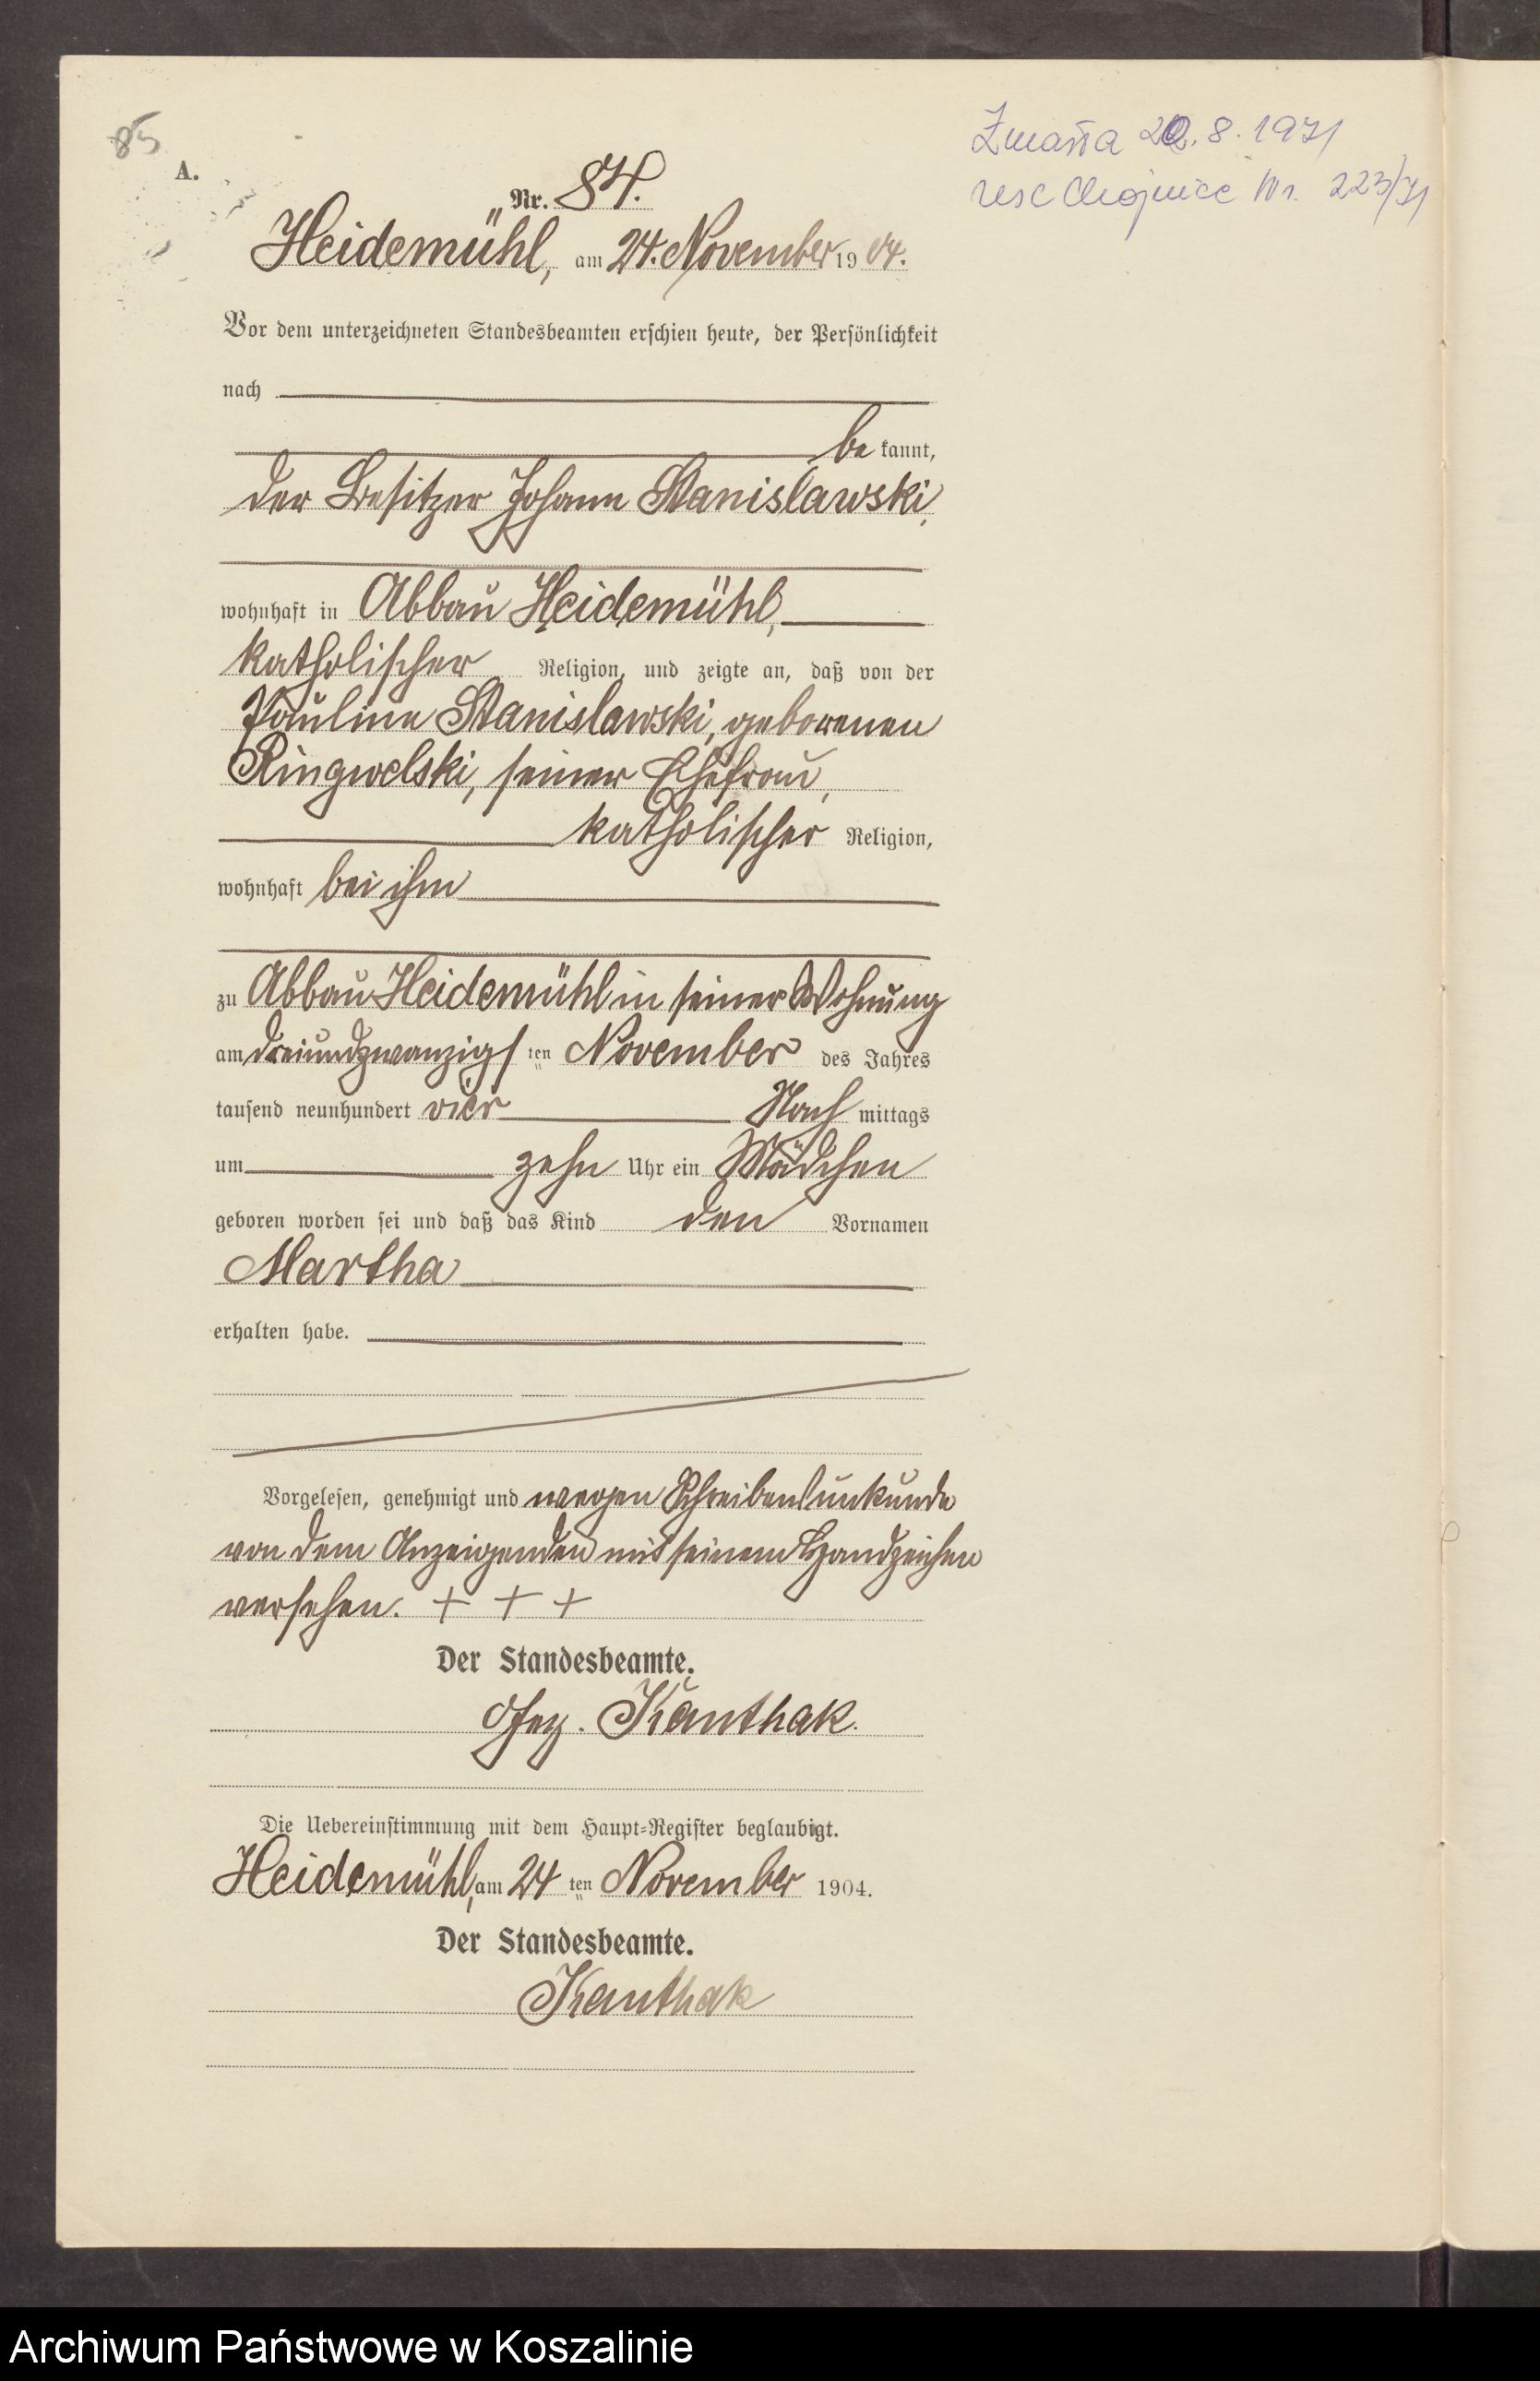 85
A.
Nr. 84.
Heidemühl, am 24. November 1904.
Vor dem unterzeichneten Standesbeamten erschien heute, der Persönlichkeit
nach
be kannt,
der Besitzer Johann Stanislawski,
wohnhaft in Abbau Heidemühl,
katholischer Religion, und zeigte an, daß von der
Pauline Stanislawski, geborenen
Ringwelski, seiner Ehefrau,
katholischer Religion,
wohnhaft bei ihm
zu Abbau Heidemühl in seiner Wohnung
am dreiundzwanzigsten November des Jahres
tausend neunhundert vier Nach mittags
um zehn Uhr ein Mädchen
geboren worden sei und daß das Kind den Vornamen
Martha
erhalten habe.
Vorgelesen, genehmigt und wegen Schreibensunkunde
von dem Anzeigenden mit seinem Handzeichen
versehen. + + +
Der Standesbeamte.
Gez. Kanthak.
Die Uebereinstimmung mit dem Haupt-Register beglaubigt.
Heidemühl, am 24 ten November 1904.
Der Standesbeamte.
Kanthak
Zmarła 20.8.1971
USC Chojnice Nr. 223/71
Archiwum Państwowe w Koszalinie